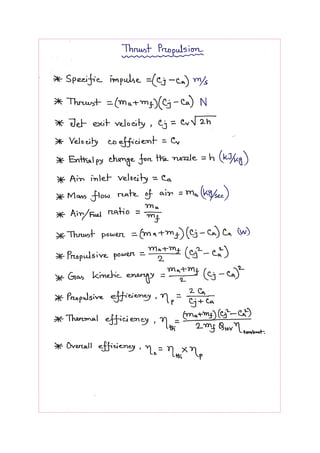 Thrust Propulsion
* Specific impulse = (Cj - Ca) m/s
* Thrust = (ma + mf)(Cj - Ca) N
* Jet exit velocity, Cj = Cv √2h
* Velocity coefficient = Cv
* Enthalpy change for the nozzle = h (kJ/kg)
* Air inlet velocity = Ca
* Mass flow rate of air = ma (kg/sec)
* Air/Fuel ratio = ma/mf
* Thrust power = (ma + mf)(Cj - Ca) Ca (W)
* Propulsive power = (ma + mf)/2 (Cj² - Ca²)
* Gas kinetic energy = (ma + mf)/2 (Cj - Ca)²
* Propulsive efficiency, ηp = 2 Ca/(Cj + Ca)
* Thermal efficiency, ηth = (ma + mf)(Cj² - Ca²)/(2 mf Qlcv η
* Overall efficiency, ηo = ηth × ηp